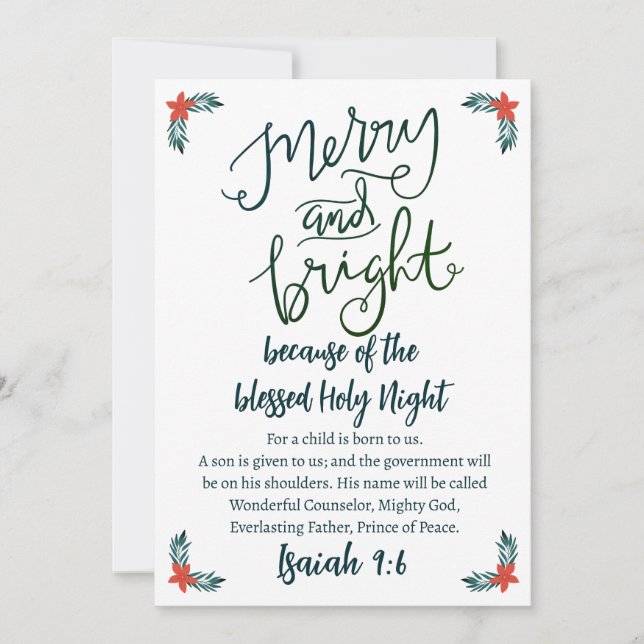 Merry
and
bright
because of the
blessed Holy Night
For a child is born to us.
A son is given to us; and the government will
be on his shoulders. His name will be called
Wonderful Counselor, Mighty God,
Everlasting Father, Prince of Peace.
Isaiah 9:6